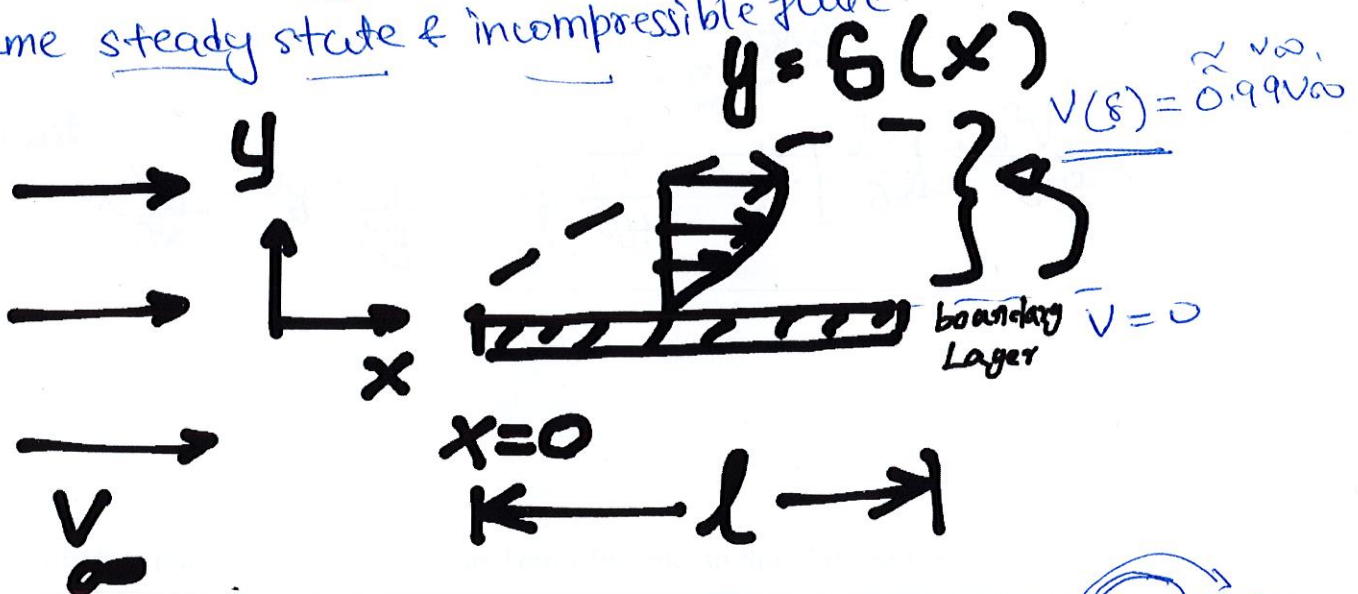 me steady state & incompressible
y = δ(x)
≈ V∞
V(δ) = 0.99V∞
y
x
boundary V = 0
Layer
x=0
l
V∞